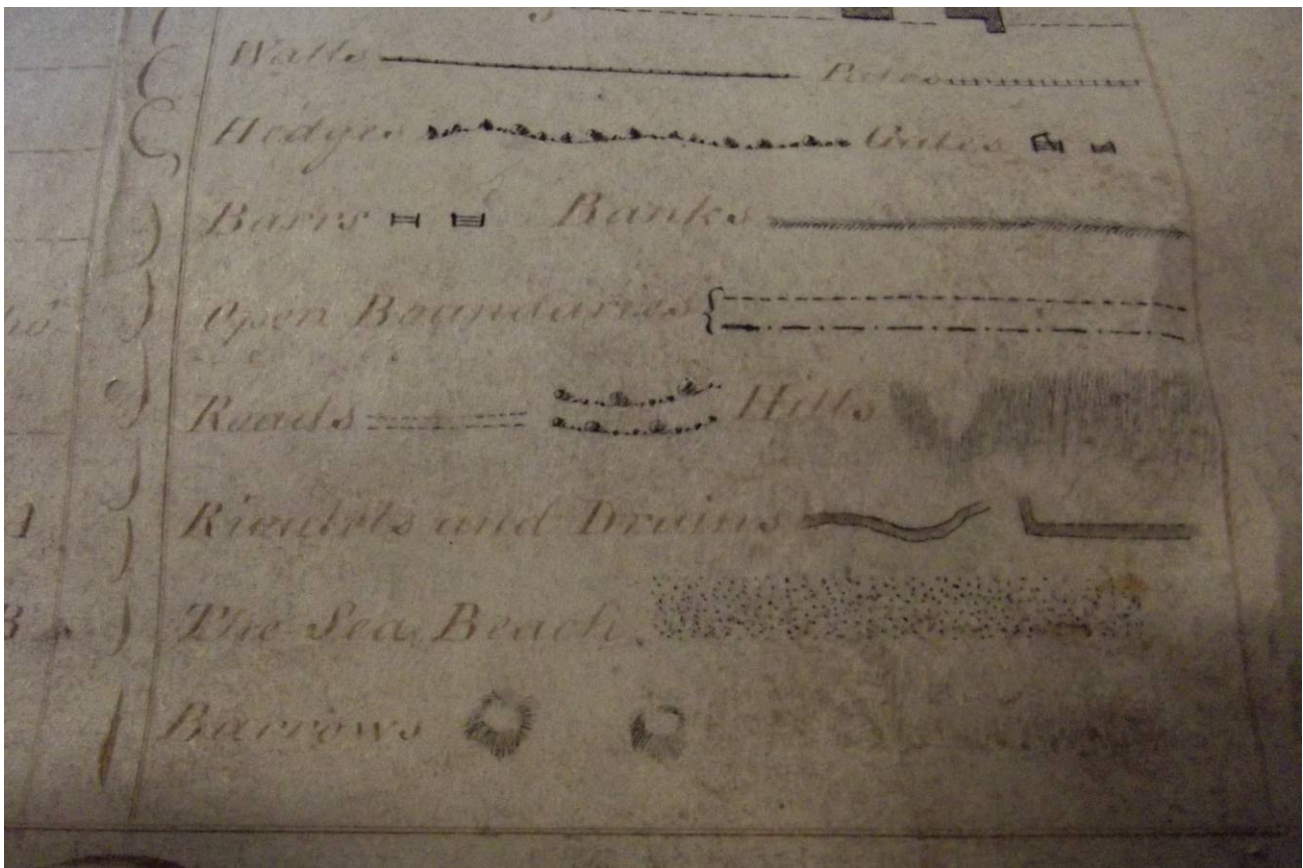 Walls Pales
Hedges Gates
Barrs Banks
Open Boundaries
Roads Hills
Rivulets and Drains
The Sea Beach
Barrows